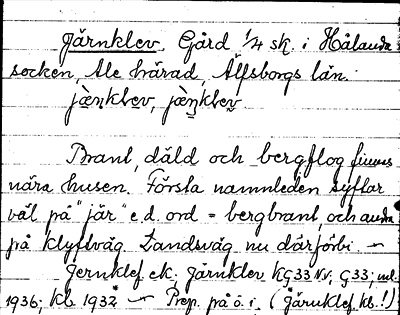 Järnklev. Gård 1/4 sk. i Hålanda
socken, Ale härad, Älfsborgs län.
jæ̀ṇklev, jæ̀ṇklev
Brant, däld och bergflog finnes
nära husen. Första namnleden syftar
väl på "jär" e.d. ord = bergbrant, och andra
på klyftväg. Landsväg nu därförbi. —
Jernklef ek; Järnklev KG33 NV; G33;
1936; kb 1932 — Prep. på ö. i. (Järnklef kb.!)